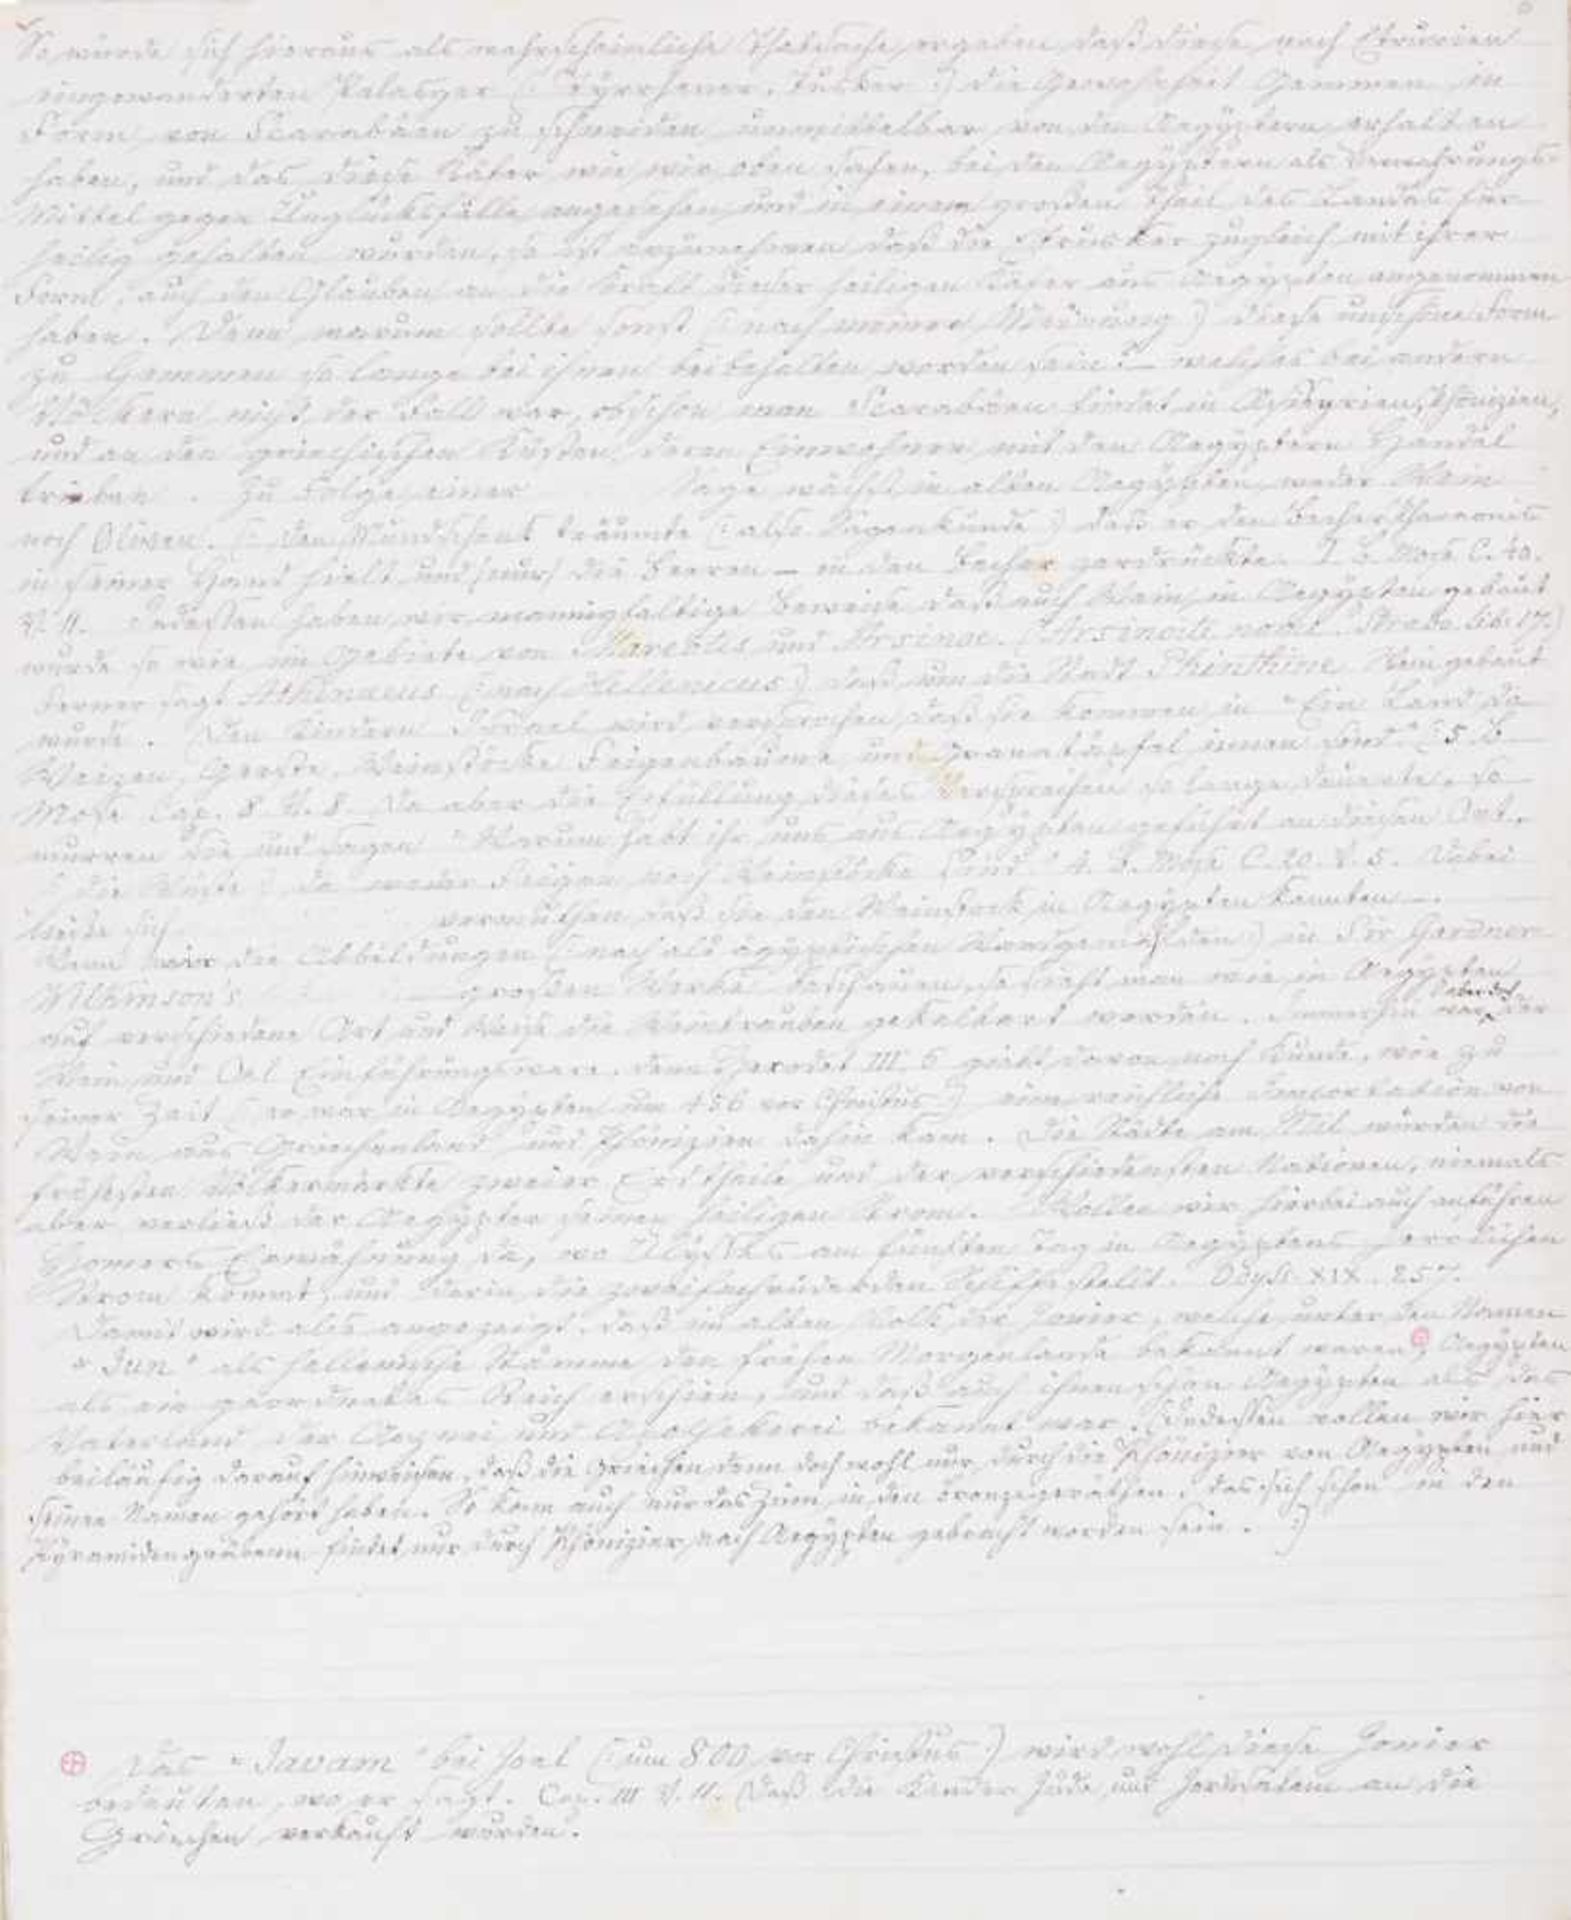 So würde sich hieraus als wahrscheinliche Thatsache ergeben, daß diese nach Etrurien
eingewanderten Pelasger (: Tyrrhener, Tusker :) die Gewohnheit Gemmen in
Form von Scarabäen zu schneiden unmittelbar von den Aegyptern erhalten
haben, und das diese Käfer wie wir oben sahen, bei den Aegyptern als Verwahrungs-
Mittel gegen Unglücksfälle angesehen und in einem großen Theil des Landes für
heilig gehalten wurden, so ist anzunehmen daß die Etrusker zugleich mit ihrer
Form, auch den Glauben an die Kraft dieser heiligen Käfer aus Aegypten angenommen
haben. Denn warum sollte sonst (: nach meiner Meinung :) diese unschöne Form
zu Gemmen so lange bei ihnen beibehalten worden sein? – welches bei andern
Völkern nicht der Fall war, obschon man Scarabäen findet in Assyrien, Phönizien,
und an den griechischen Küsten, deren Einwohner mit den Aegyptern Handel
trieben. Zu Folge einer Sage wächst in alten Aegypten, weder Wein
noch Oliven. (: Den Mundschenk träumte (: als :) daß er den Becher Pharaonis
in seiner Hand hielt und /nur/ die Beeren – in den Becher zerdrückte. I. B. Mose C. 40.
V. 11. Indessen haben wir mannigfaltige Beweise daß auch Wein in Aegypten gebaut
wurde so wie im Gebiete von Mareotis und Arsinoe. (Arsinoiti nome. Strabo lib. 17.)
Ferner sagt Athenaeus (: nach Hellenicus :) daß um die Stadt Phinthine Wein gebaut
wurde. Den Kindern Israel wird versprochen daß sie kommen in "Ein Land da
Weizen, Gerste, Weinstöcke Feigenbäume, und Granatäpfel innen sind" (: 5. B.
Mose Cap. 8 V. 8. Da aber die Erfüllung dieses Versprechen so lange dauerte, so
murren sie und sagen "Warum habt ihr uns aus Aegypten geführt an diesen Ort,
(: die Wüste :) da weder Feigen noch Weinstöcke sind" 4. B. Mose C. 20. V. 5. Dabei
ließe sich vermuthen daß sie den Weinstock in Aegypten kannten –.
Wenn wir die Abbildungen (: nach alt ägyptischen Wandgemälden :) in Sir Gardner
Wilkinson's großen Werke beschauen, so sieht man wie in Aegypten
auf verschiedene Art und Weise die Weintrauben gekeltert werden. Immerhin war aber doch der
Wein und Oel Einführungsware, denn Herodot III. 6 giebt davon noch Kunde, wie zu
seiner Zeit (: er war in Aegypten um 456 vor Christus :) eine reichliche Importation von
Wein aus Griechenland und Phönizien dahin kam. Die Städte am Nil wurden die
frühesten Völkermärkte zweier Erdtheile und der verschiedensten Nationen, niemals
aber verließ der Aegypter seinen heiligen Strom. Wollen wir hierbei auch anführen
Homers Erwähnung da, wo Ulysses am fünften Tag in Aegyptens herrlichen
Strom kommt, und darin die zweifachrudernden Schiffe stellt. Odyss. XIX. 257.
Damit wird also angezeigt, daß im alten Volk der Jonier, welche unter den Namen
"Jun" als hellenische Stämme den frühen Morgenlande bekannt waren ⊕, Aegypten
als ein geordnetes Reich erschien, und daß auch ihnen schon Aegypten als das
Vaterland der Arznei und Apothekerei bekannt war. (Indessen wollen wir hier
beiläufig darauf hinweisen, daß die Griechen denn doch wohl nur durch die Phönizier von Aegypten und
seinen Namen gehört haben. So kann auch nur das Zinn, in den Bronzegeräthen, das sich schon in den
Pyramidengräbern findet nur durch Phönizier nach Aegypten gebracht worden sein. :)
⊕ Das "Javam" bei Joel (: um 800 vor Christus :) wird wohl diese Jonier
bedeuten, wo er sagt. Cap. III V. 11. Daß die Kinder Juda und Jerusalem an die
Griechen verkauft wurden.